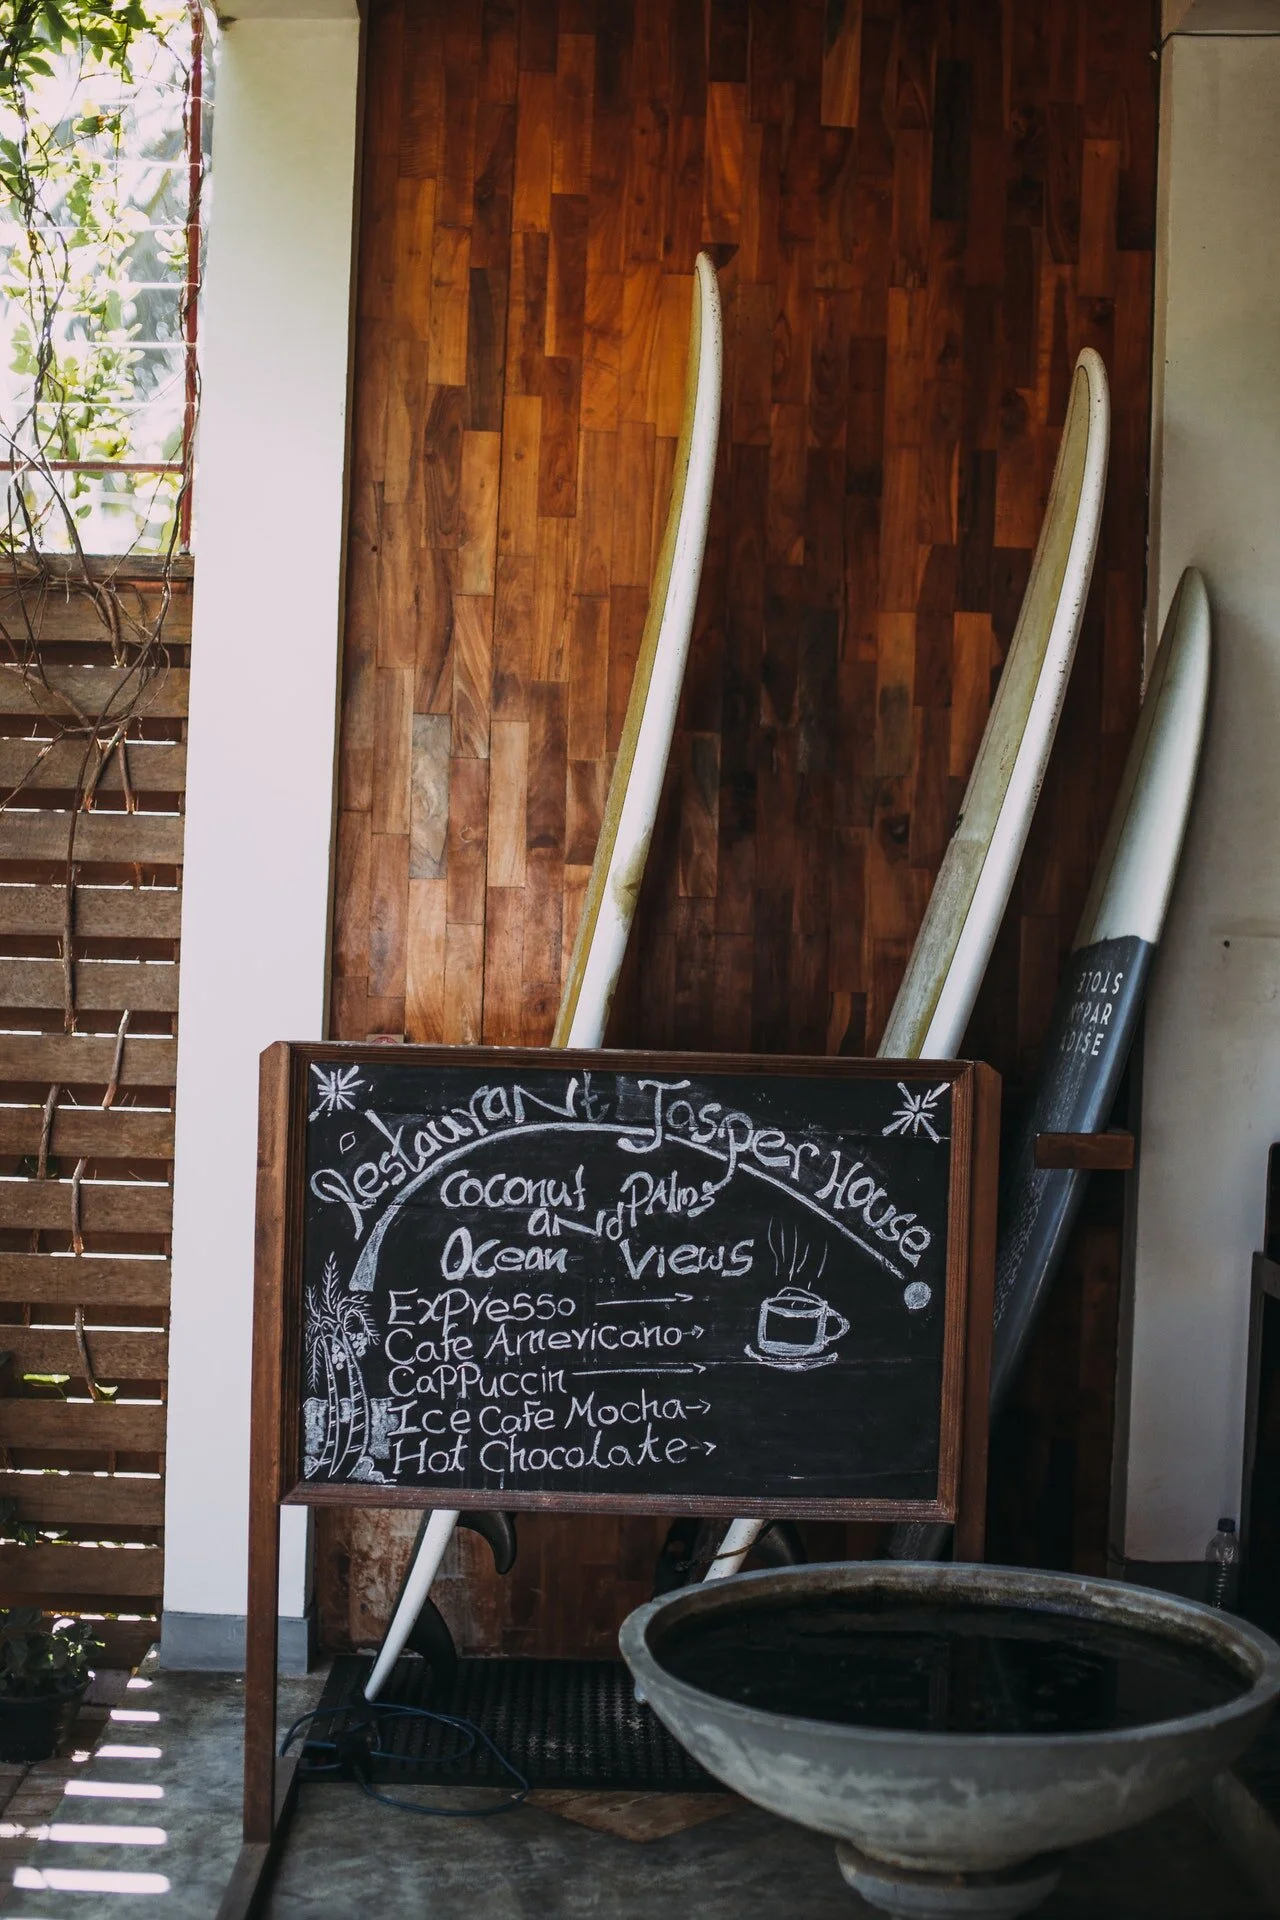 Restaurant Jasper House
Coconut Palms
and
Ocean Views
Expresso
Cafe Americano
Cappuccin
Ice Cafe Mocha
Hot Chocolate